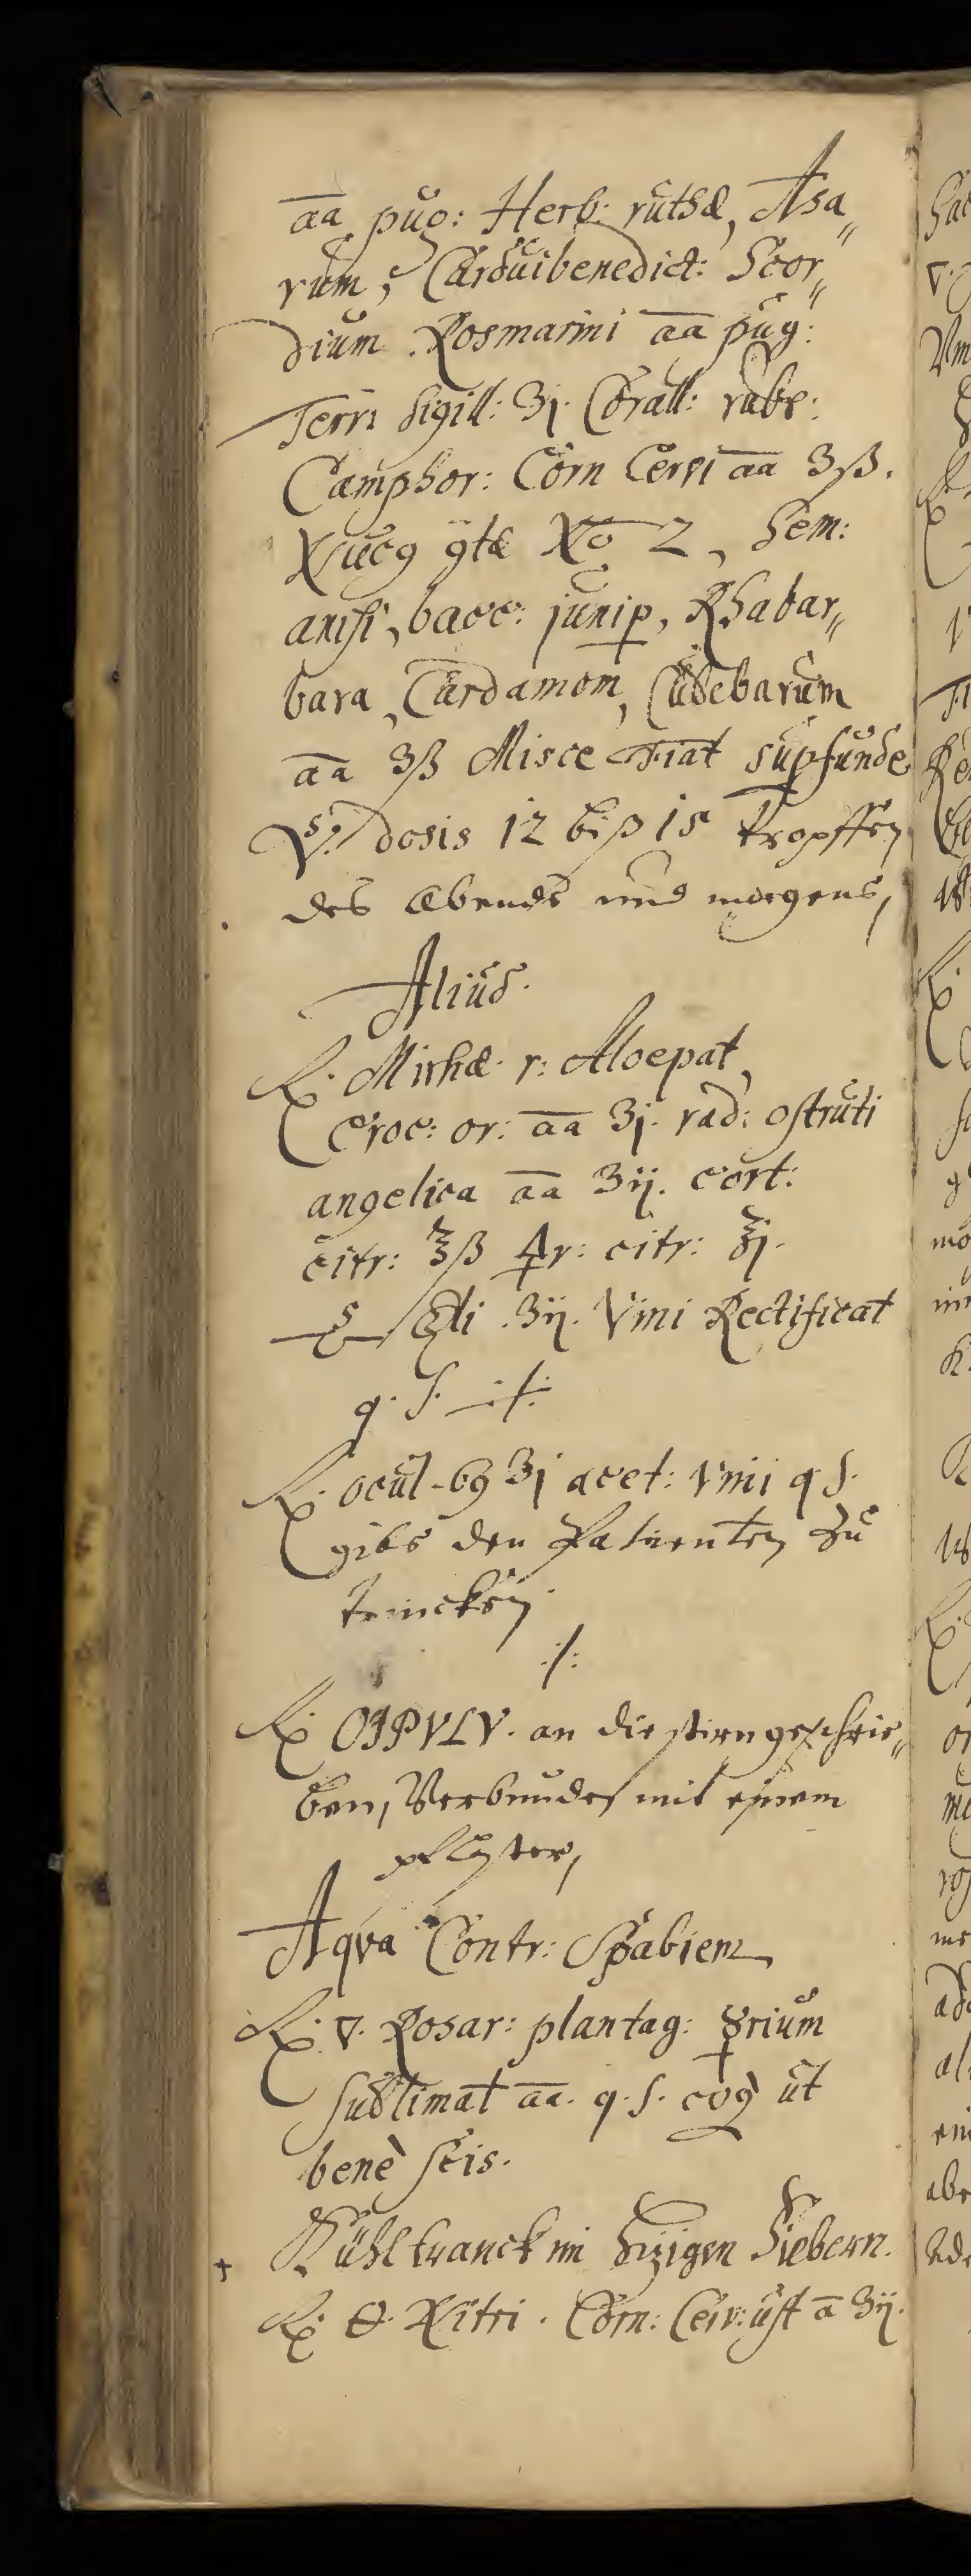 aa pug: Herb: ruthæ, Asa„
rum, Carduibenedict: Scor„
dium Rosmarini aa pug:
Terri Sigill: ʒj. Corall: rubr:
Camphor: Corn Cervi aa ʒß.
Nucꝯ Xo 2, Sem:
anisi, bacc: junip, Rhabar„
bara, Cardamom, Cubebarum
aa ʒß Misce Fiat supfunde
dosis 12 biß 15 Tropffen
des Abends und morgens,
Aliud.
℞. Mirhæ r: Aloepat,
Croc: or: aa ʒj. rad: ostruti
angelica aa ʒij. cort:
citr: ℥ß r: citr: ℥j.
ʒij. Vini Rectificat
q. s. ./.
℞. ocul- 69 ʒj acet: Vini q s.
gibs den Patienten zu
trincken
./.
℞ OIPVLV. an die stirn geschrie„
ben, Verbunden mit einem
pflaster,
Aqva Contr: Scabiem
℞. ▽. Rosar: plantag: ☿rium
sublimat aa. q. s. coq ut
benè scis.
+ Kühltranck in hizigen Fiebern.
℞. Nitri. Corn: Cerv: ust a ʒij.